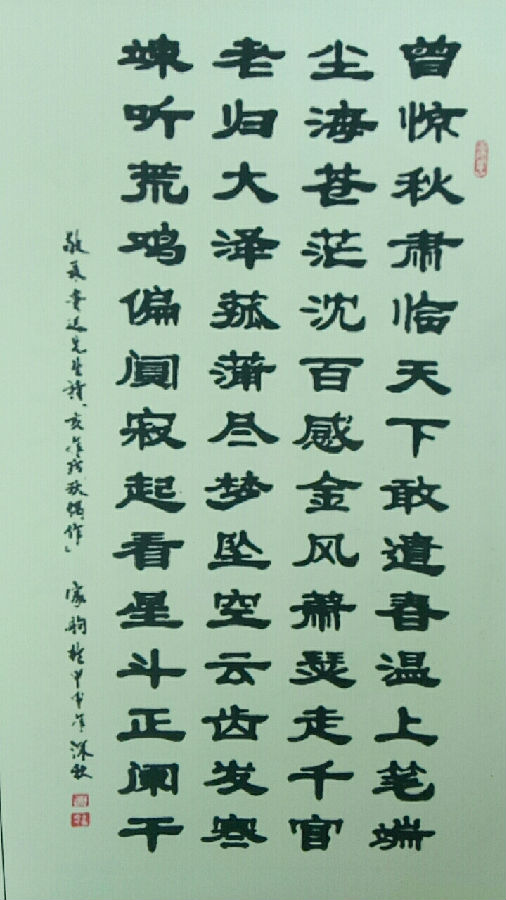 曾惊秋肃临天下敢遣春温上笔端
尘海苍茫沈百感金风萧瑟走千官
老归大泽菰蒲尽梦坠空云齿发寒
竦听荒鸡偏阒寂起看星斗正阑干
敬录鲁迅先生诗「亥年残秋偶作」 於甲申年深秋